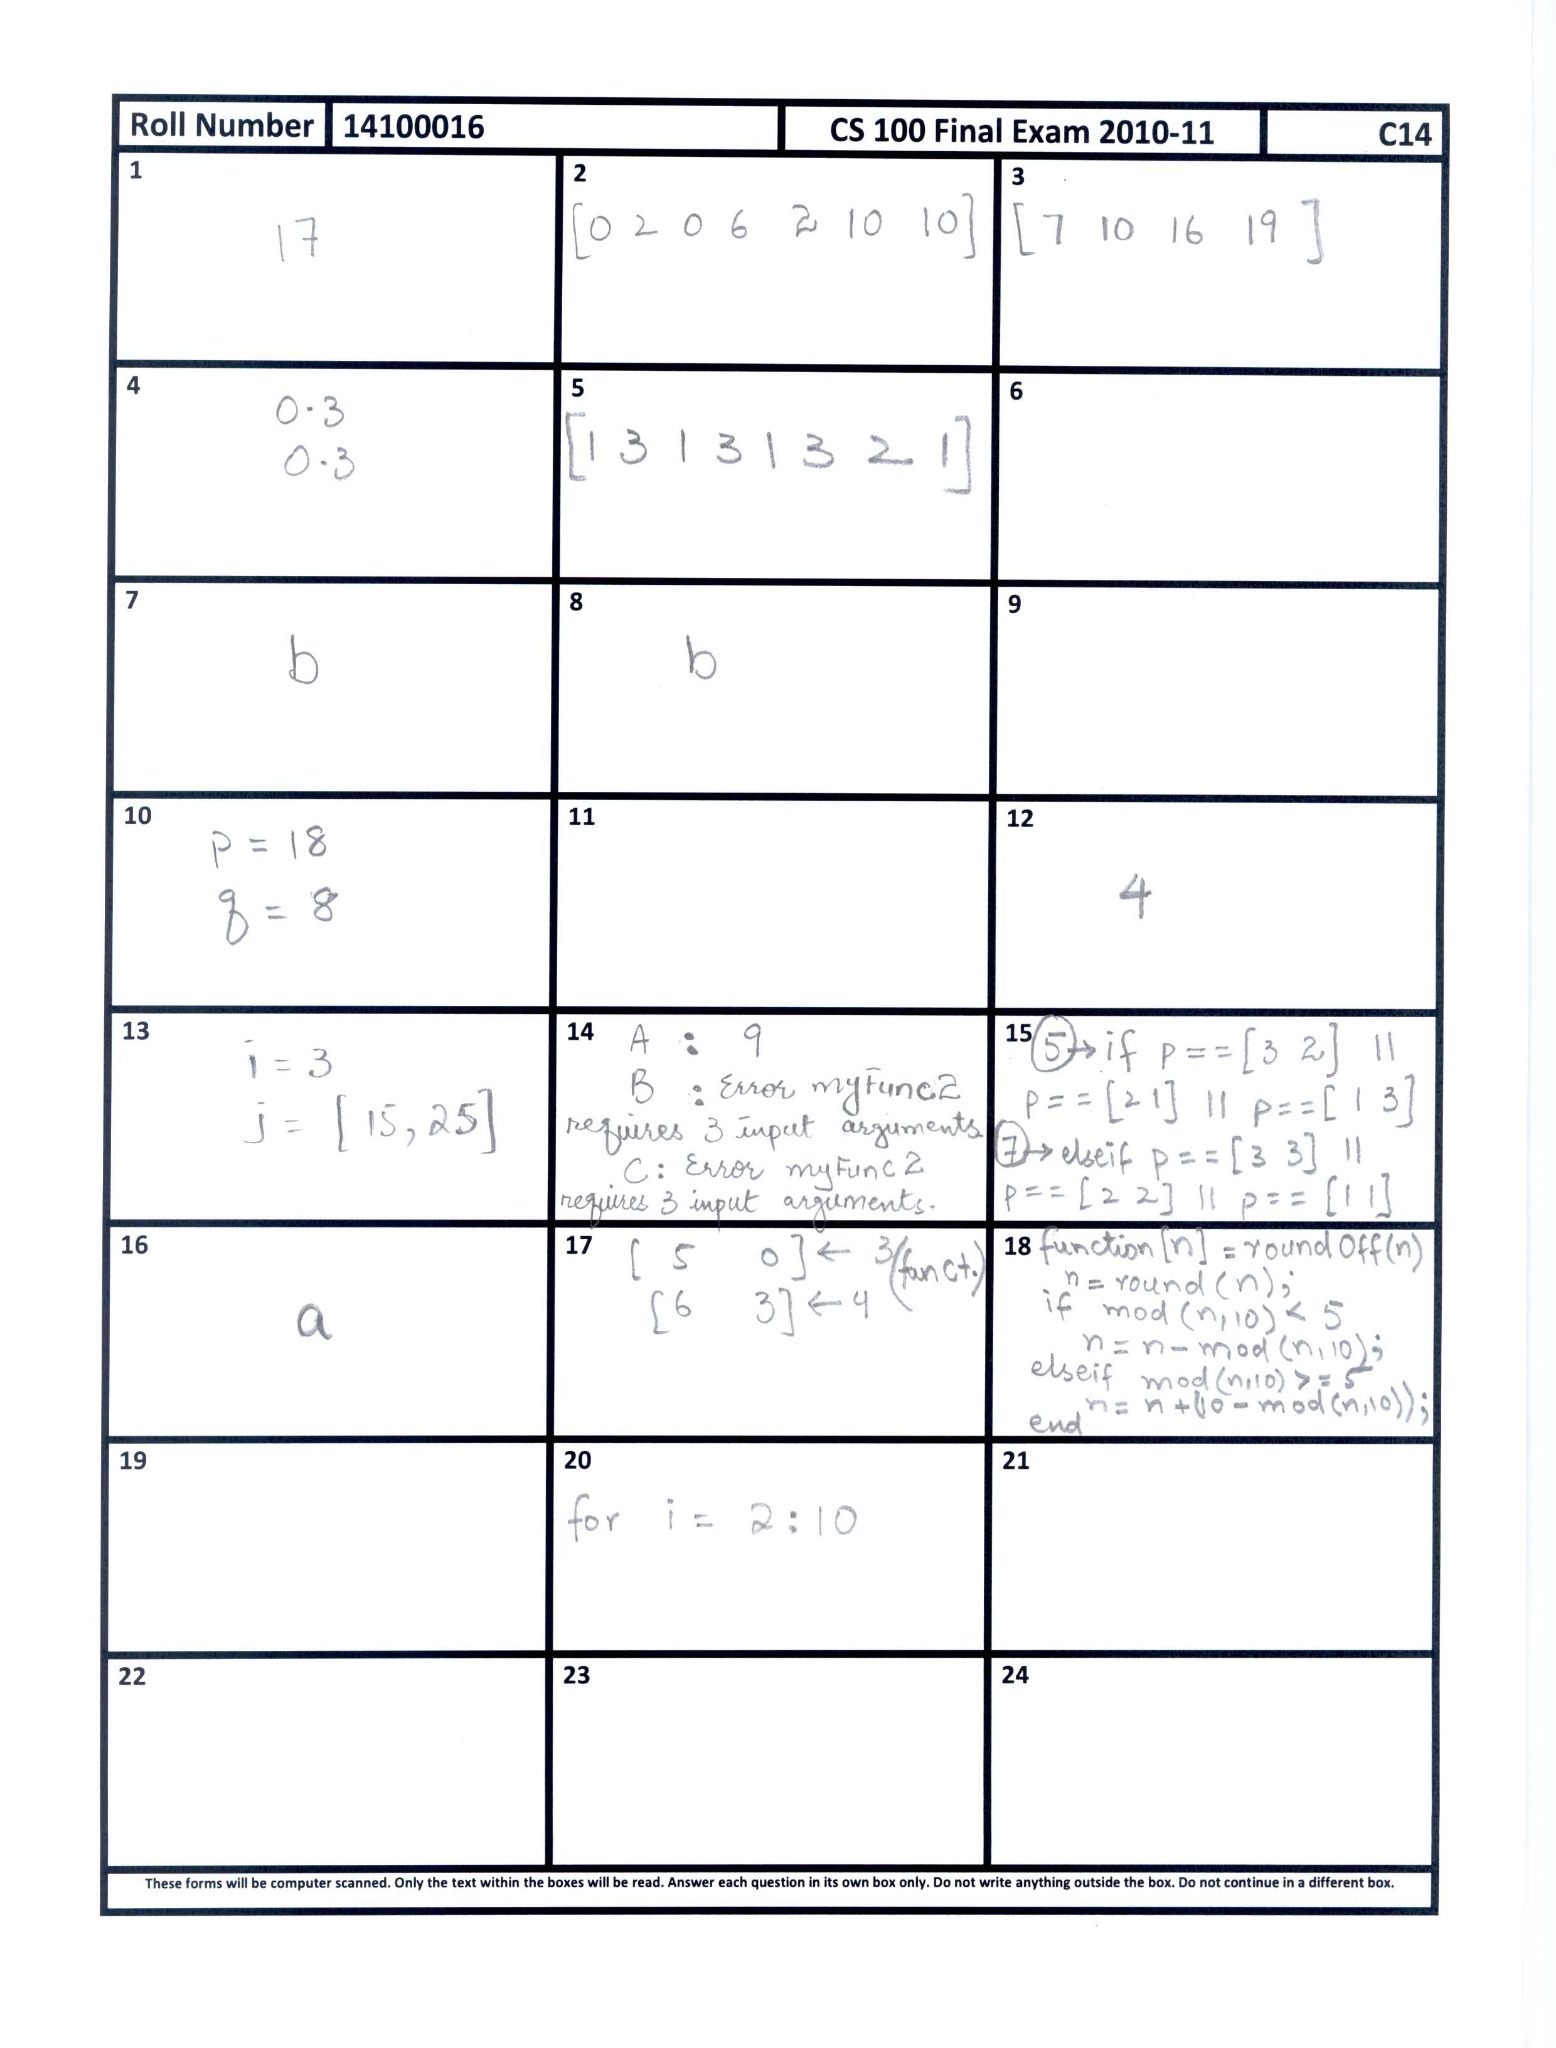 Roll Number 14100016 CS 100 Final Exam 2010-11 C14
1
17
2
[0 2 0 6 2 10 10]
3
[7 10 16 19]
4
0.3
0.3
5
[1 3 1 3 1 3 2 1]
6
7
b
8
b
9
10
p = 18
q = 8
11
12
4
13
i = 3
j = [15, 25]
14 A : 9
B : Error myFunc2
requires 3 input arguments
C: Error myFunc2
requires 3 input arguments.
15 5→ if p==[3 2] ||
p==[2 1] || p==[1 3]
7→ elseif p==[3 3] ||
p==[2 2] || p==[1 1]
16
a
17 [5 0] ← 3 (funct.)
[6 3] ← 4
18 function [n] = roundOff(n)
n = round(n);
if mod(n,10) < 5
n = n - mod(n,10);
elseif mod(n,10) >= 5
n = n + (10 - mod(n,10));
end
19
20
for i = 2:10
21
22
23
24
These forms will be computer scanned. Only the text within the boxes will be read. Answer each question in its own box only. Do not write anything outside the box. Do not continue in a different box.